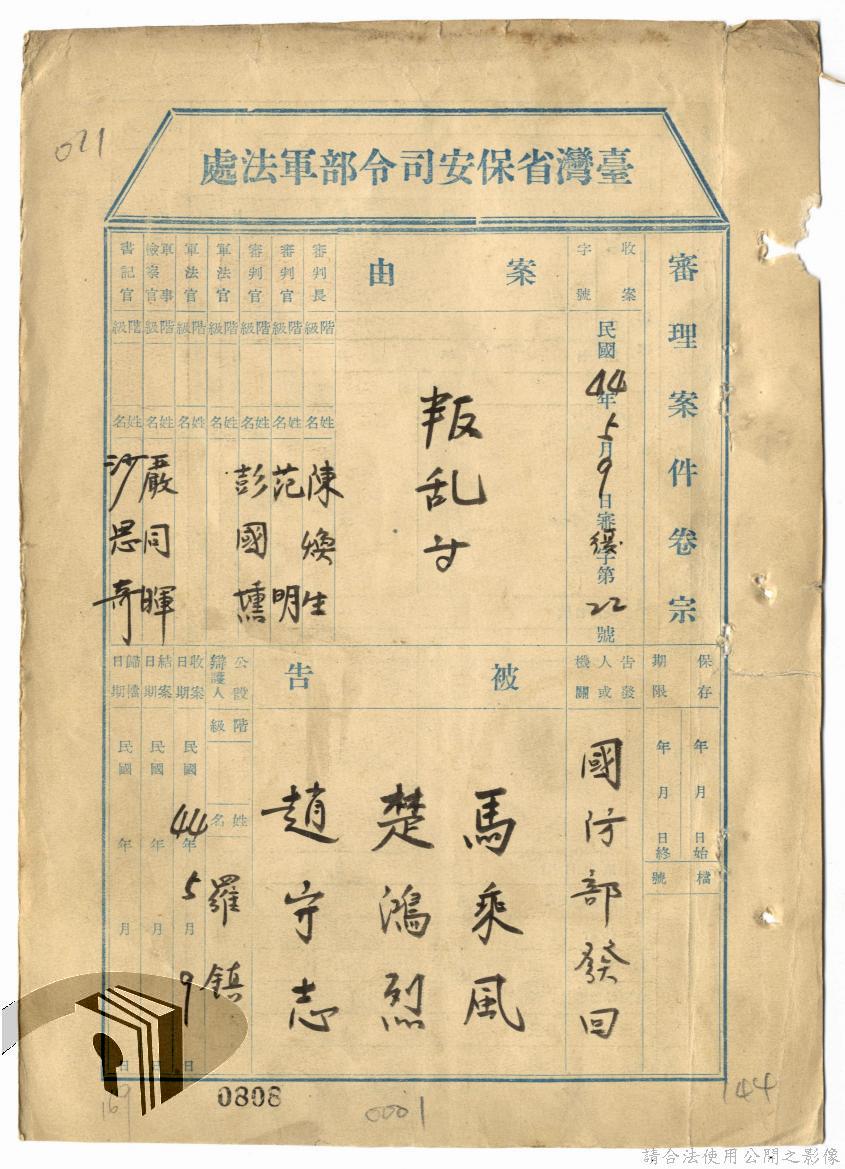 021
臺灣省保安司令部軍法處
審理案件卷宗
保存期限
年 月 日始
年 月 日終
檔號
收案字號
民國44年5月9日審緩字第22號
告發人或機關
國防部發回
案由
叛乱
被告
馬乘風
楚鴻烈
趙守志
審判長
階級
姓名
陳煥生
審判官
階級
姓名
范明
審判官
階級
姓名
彭國壎
軍法官
階級
姓名
軍法官
階級
姓名
軍事檢察官
階級
姓名
嚴同暉
書記官
階級
姓名
沙思奇
公設辯護人
階級
姓名
羅鎮
收案日期
民國44年5月9日
結案日期
民國 年 月 日
歸檔日期
民國 年 月 日
169
0808
0001
144
請合法使用公開之影像